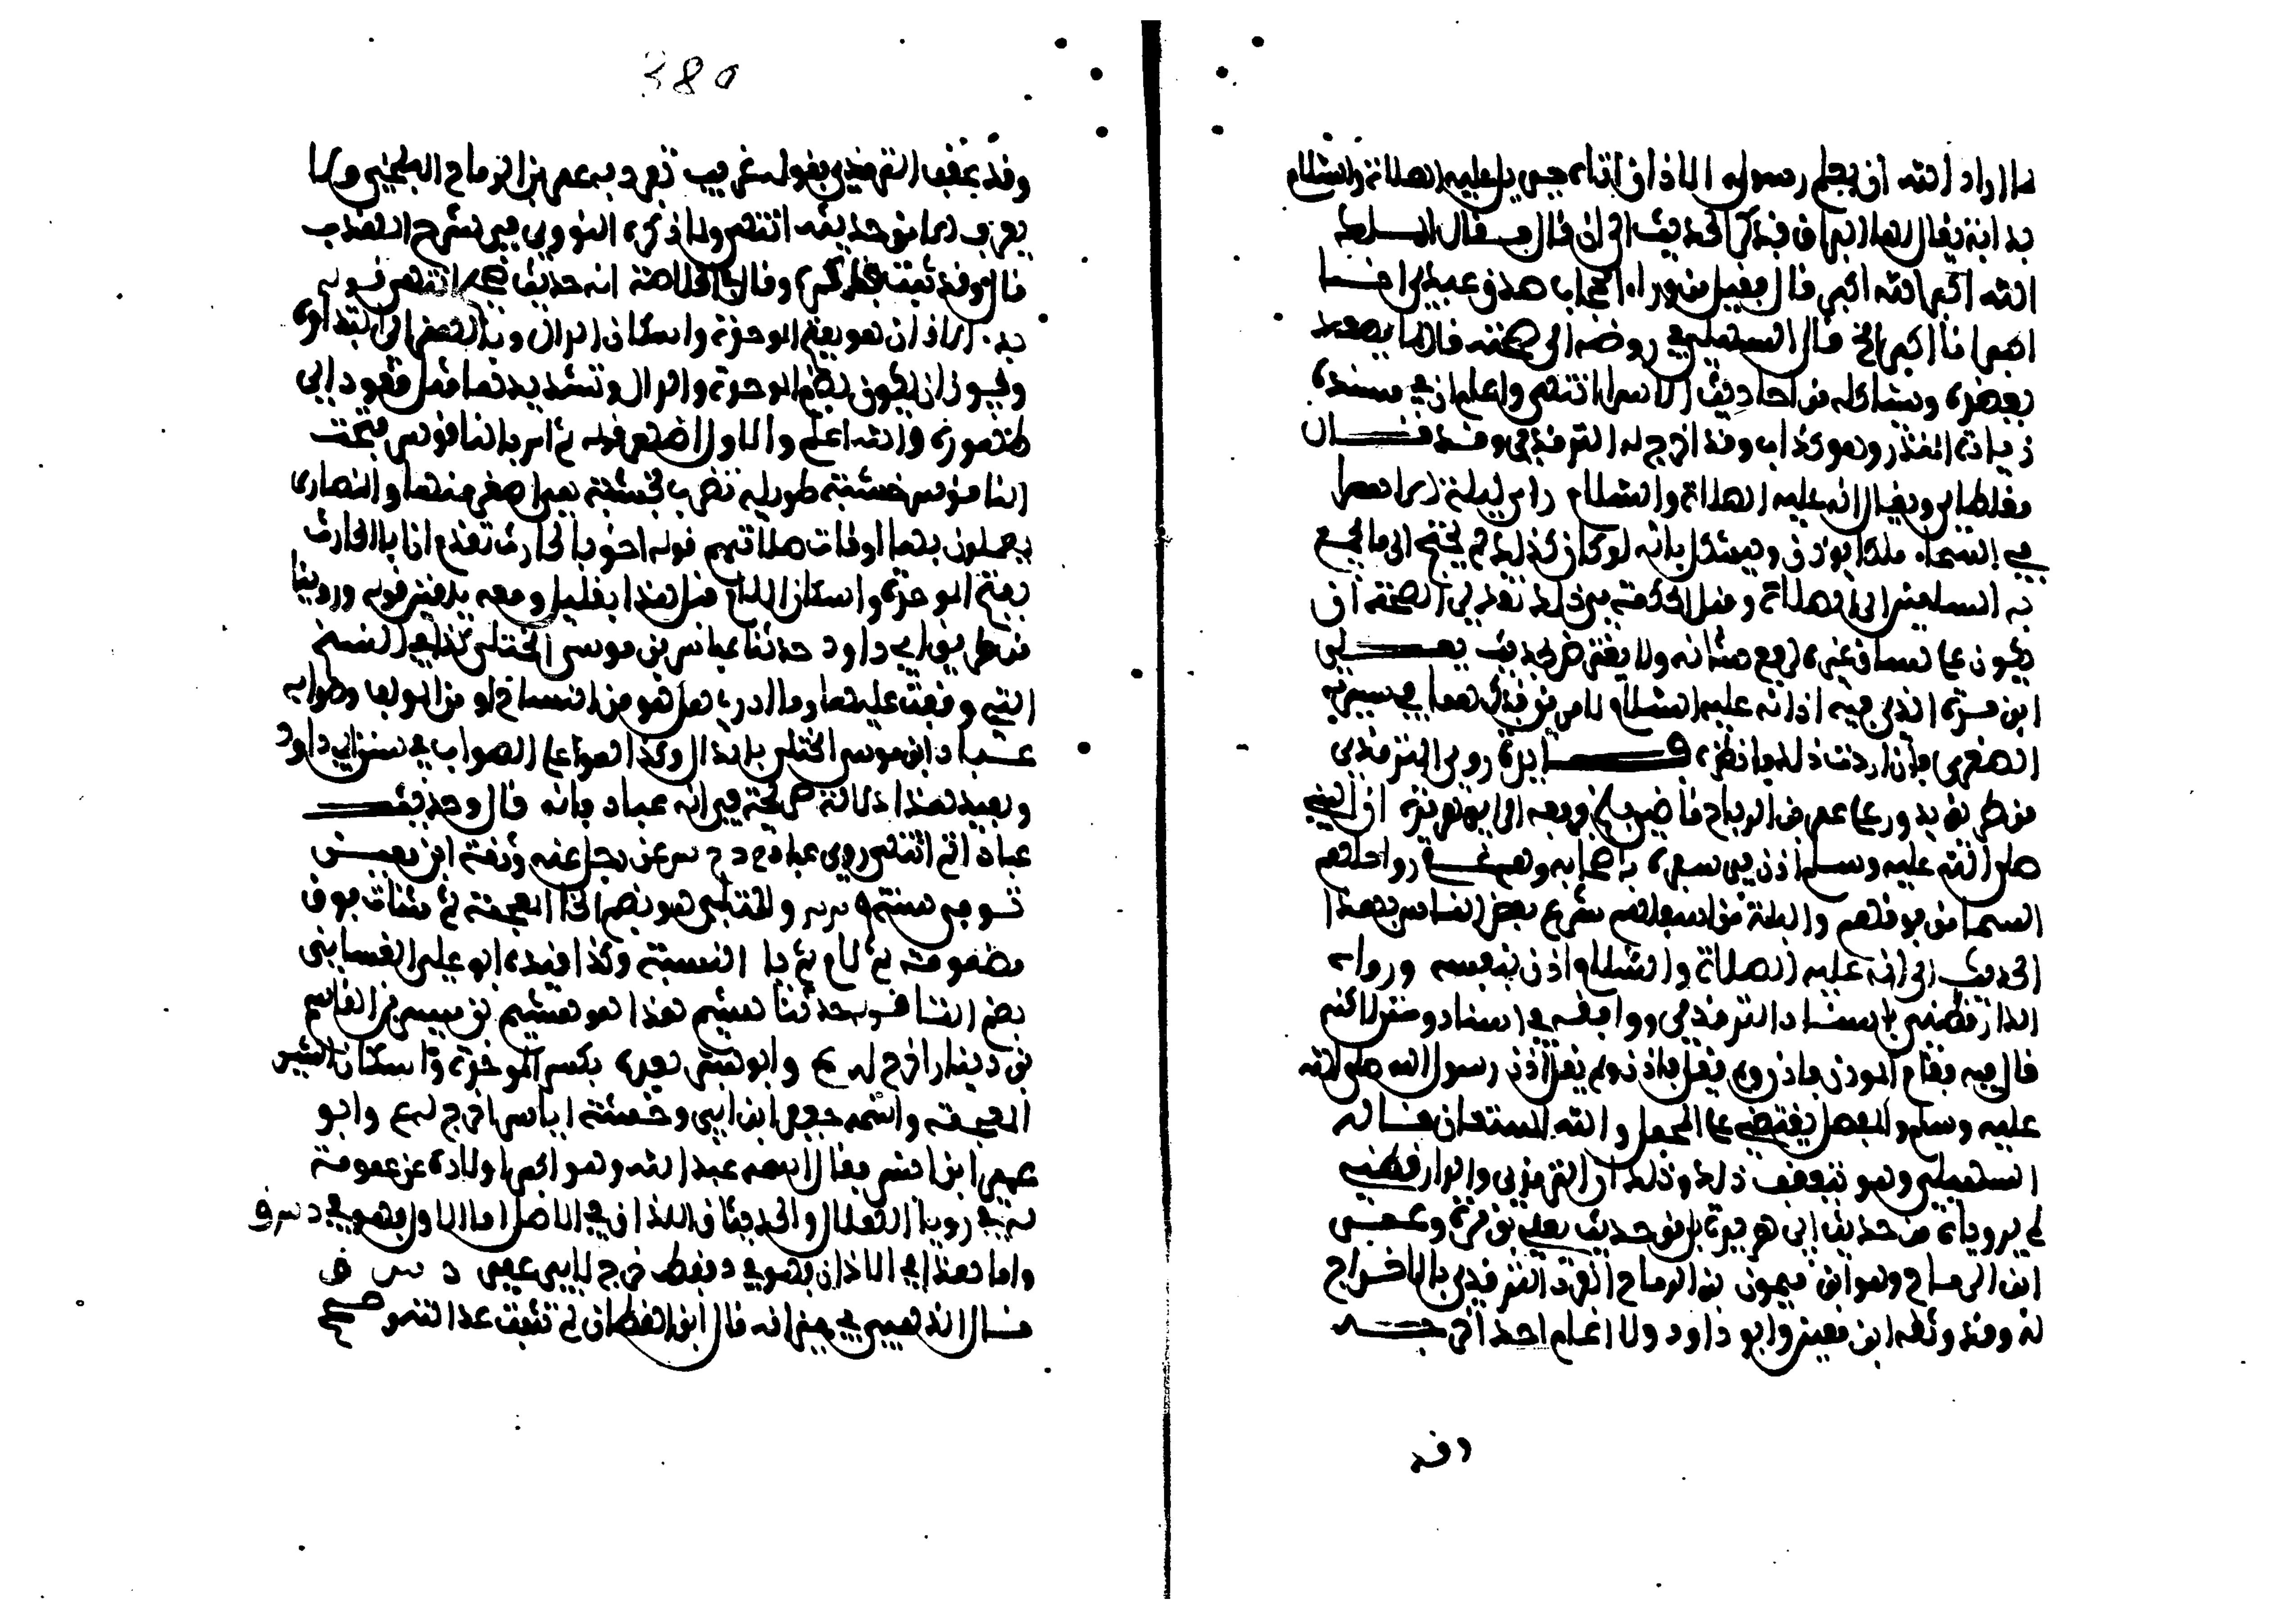 لما اراد الله ان يعلم رسوله الاذان اتاه جبريل عليه الصلاة والسلام
بدابة يقال لها البراق فذكر الحديث الى ان قال فقال الملك
الله اكبر الله اكبر قال فقيل من وراء الحجاب صدق عبدي انا
اكبر انا اكبر الخ قال السهيلي في روضه الى صحته قال لما يعضده
ويشاكله من احاديث الاسرا انتهى واعلم ان في مسنده
زياد ابن المنذر وهو كذاب وقد اخرج له الترمذي وقد
مغلطاي ويقال انه عليه الصلاة والسلام ليلة الاسرا
في السما ملكا يؤذن ويشكل بانه لو كان كذلك لم يحتج الى ما يجمع
به المسلمين الى الصلاة وقيل الحكمة في ذلك ان
يكون على لسان غيره لرفع شانه ولا يعترض بحديث يعلى
ابن مرة الذي فيه اذانه عليه السلام لامر قد ذكر في سيرته
الصغرى فان اردت ذلك فانظره فايدة روى الترمذي
من طريق يدور على عمر بن الرماح قاضي بلخ يرفعه الى ابي هريرة ان النبي
صلى الله عليه وسلم اذن في سفره باصحابه وهم على رواحلهم
السما من فوقهم والبلة من اسفلهم فنزع بعض الناس بهذا
الحديث الى انه عليه الصلاة والسلام اذن بنفسه ورواه
الدارقطني باسناد الترمذي ووافقه في اسناد ومتن لاكنه
قال فيه فقام الموذن فاذن ولم يقل اذن رسول الله صلى الله
عليه وسلم والمفصل يقتضي على المجمل والله المستعان قاله
السهيلي وهو متعقب ذلك وذلك ان الترمذي والدارقطني
لم يروياه من حديث ابي هريرة بل من حديث يعلى بن مرة وعمر
ابن الرماح وهو ابن ميمون بن الرماح انفرد الترمذي بالاخراج
له وقد وثقه ابن معين وابو داود ولا اعلم احدا جرحه
وقد
380
وقد تعقبه الترمذي بقوله غريب تفرد به عمر بن الرماح البلخي ولا
يعرف الا من حديثه انتهى ولما ذكره النووي في شرح المهذب
قال وقال في الخلاصة انه حديث صحيح انتهى قوله
بدء الاذان هو بفتح الموحدة واسكان الدال وبالهمز اي ابتداؤه
ويجوز ان يكون بضم الموحدة والدال وتشديد
والله اعلم والاول اظهر قوله ثم امر بالناقوس فنحت
الناقوس خشبة طويلة تضرب بخشبة اصغر منها والنصارى
يعلمون بها اوقات صلاتهم قوله اخو بالحارث تقدم ان بالحارث
بفتح الموحدة واسكان اللام قبل هذا بقليل ومعه قوله وروينا
من طريق ابي داود حدثنا عباس بن موسى الختلي كذا في النسخ
التي وقفت عليها وما ادري هل هو من النساخ او من المولف وصوابه
عباد ابن موسى الختلي بالدال وكذا هو على الصواب في سنن ابي داود
وبعيد هذا دلالة صريحة في انه عباد فانه قال وحديث
عباد اتم انتهى روى عباد خ م د س عن رجل عنه وثقه ابن معين
توفي سنة والختلي هو بضم الخا المعجمة ثم مثناة فوق
مضمومة ثم لام ثم يا النسبة وكذا قيده ابو علي الغساني
بضم التا قوله حدثنا هشيم هذا هو هشيم بن بشير بن القاسم
بن دينار اخرج له ع وابو بشر بعده بكسر الموحدة واسكان الشين
المعجمة واسمه جعفر ابن ابي وحشية اياس اخرج له ع وابو
عمير ابن انس يقال اسمه عبد الله وهو اكبر اولاده عن عمومة
له في رويا الهلال والحديثان اللذان في الاصل اما الاول فهو في د س ق
واما هذا في الاذان فهو في د فقط خرج لابي عمير د س ق
قال الذهبي في ميزانه قال ابن القطان لم تثبت عدالته وصحح